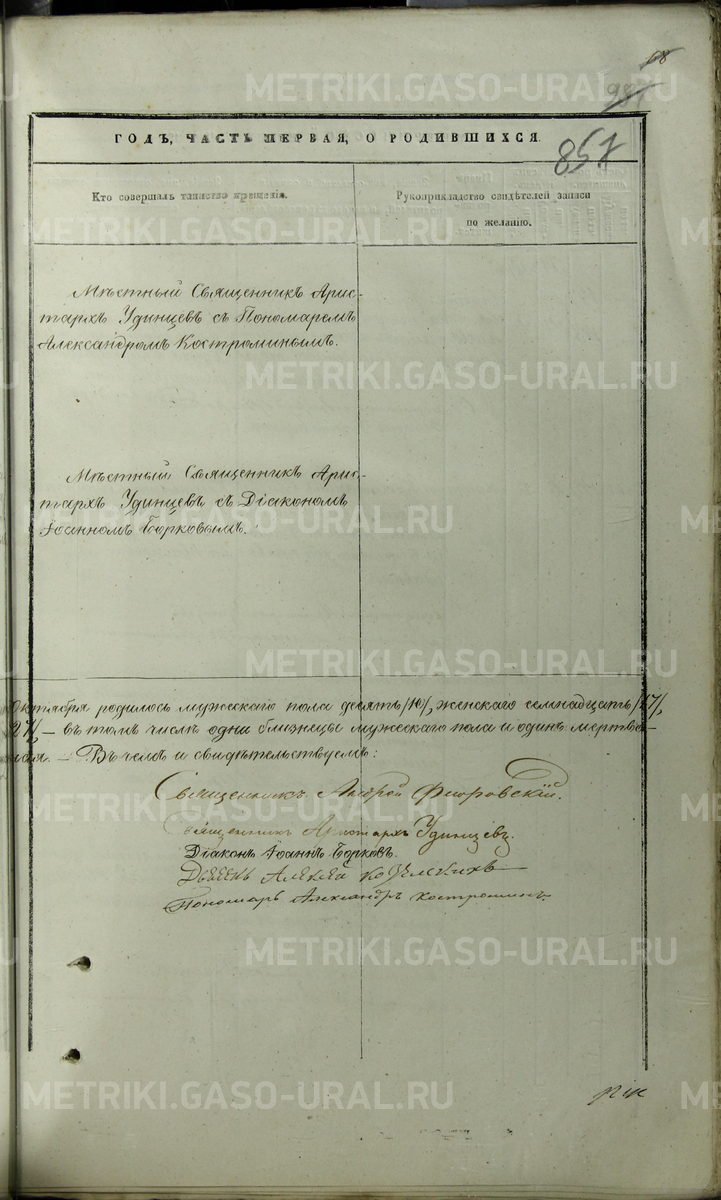 68
987
ГОДЪ, ЧАСТЬ ПЕРВАЯ, О РОДИВШИХСЯ.
857
Кто совершалъ таинство крещенія.
Рукоприкладство свидѣтелей записи
по желанію.
Мѣстный Священникъ Арис-
тархъ Удинцевъ съ Пономаремъ
Александромъ Костроминымъ.
Мѣстный Священникъ Арис-
тархъ Удинцевъ съ Діакономъ
Іоанномъ Борковымъ.
Октября родилось мужескаго пола десять /10/, женскаго семнадцать /17/,
27/, — въ томъ числѣ одни близнецы мужескаго пола и одинъ мертво-
— Въ чемъ и свидѣтельствуемъ:
Священникъ Андрей Флоровскій.
Священникъ Аристархъ Удинцевъ.
Діаконъ Іоаннъ Борковъ.
Алексей
Пономарь Александръ Костроминъ.
METRIKI.GASO-URAL.RU